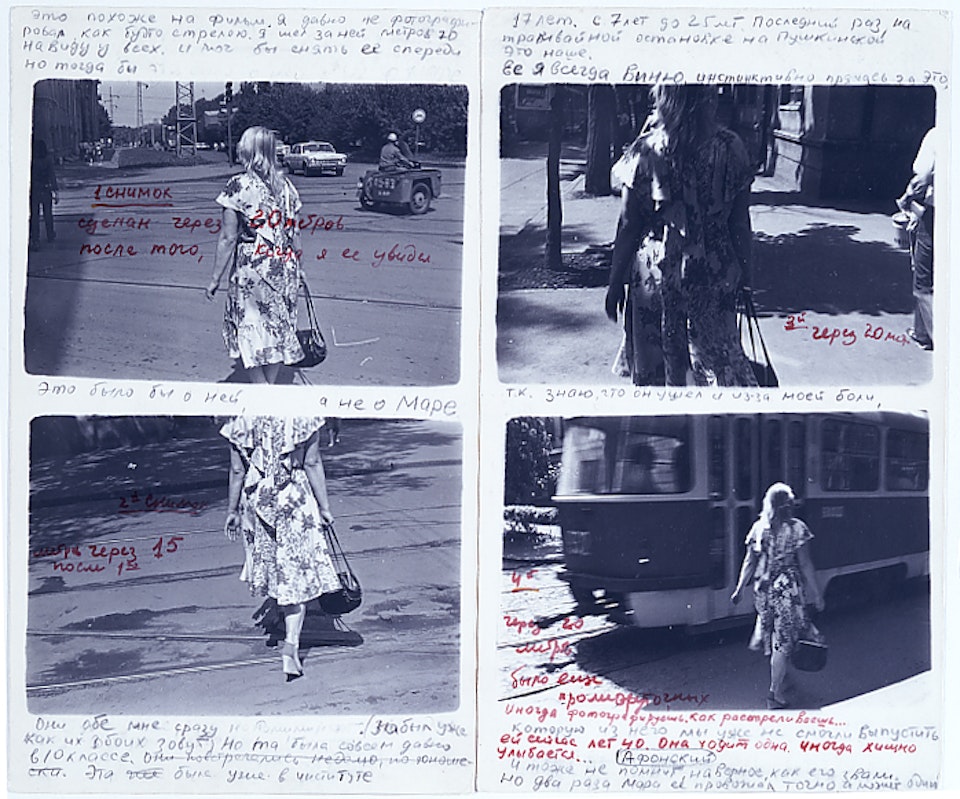 Это похоже на фильм. Я давно не фотографи-
ровал как будто стрелою. Я шел за ней метров 20
на виду у всех. и мог бы снять ее спереди
но тогда бы
1 снимок
сделан через 20 метров
после того, когда я ее увидел
Это было бы о ней, а не о Маре.
2й снимок
метра через 15
после 1го
Они обе мне сразу (забыл уже
как их обоих зовут) Но та была совсем давно
в 10 классе. они встречались недолго, но юноше-
ски. Эта уже была уже в институте
17 лет. с 7 лет до 25 лет Последний раз, на
трамвайной остановке на Пушкинской
Это наше.
Ее я всегда виню, инстинктивно прячась за это
3й через 20 м
т.к. знаю, что он ушел и из-за моей боли,
4й
через 20
метров
было еще
промежуточных
Иногда фотографируешь, как расстреливаешь...
которую из него мы уже не смогли выпустить
ей сейчас лет 40. Она ходит одна, иногда хищно
улыбается... Афонский
И тоже не помнит, наверное, как его звали.
но два раза Мара ее провожал точно и может